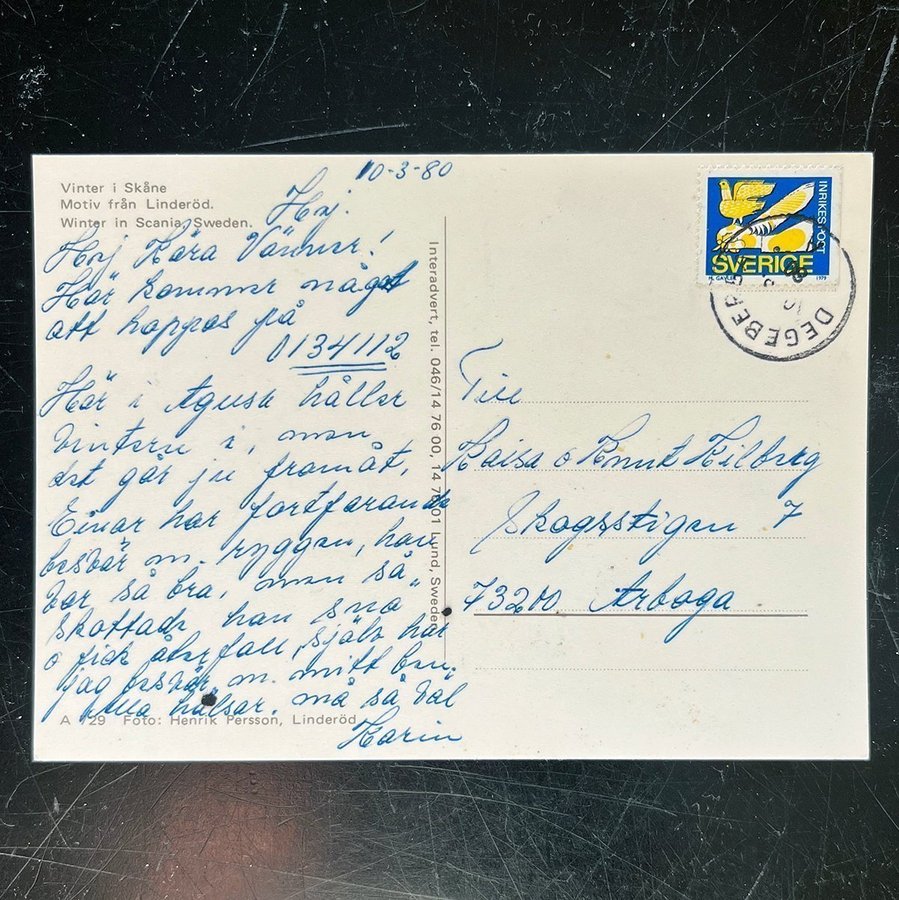 Vinter i Skåne
Motiv från Linderöd.
Winter in Scania, Sweden.
10-3-80
Hej.
Hej Kära Vänner!
Här kommer något
att hoppas på
0134112
Här i Agusa håller
vintern i, men
det går ju framåt,
Einar har fortfarande
besvär m. ryggen, han
var så bra, men så
skottade han snö
o fick återfall, själv har
jag besvär m. mitt ben,
Alla hälsar. må så väl
Karin
A 729 Foto: Henrik Persson, Linderöd
Interadvert, tel. 046/14 76 00, 14 76 01 Lund, Sweden
INRIKES POST
SVERIGE
M. GAVLER 1979
DEGEBERGA
Till
Kaisa o Knut Kilberg
Skogsstigen 7
73200 Arboga